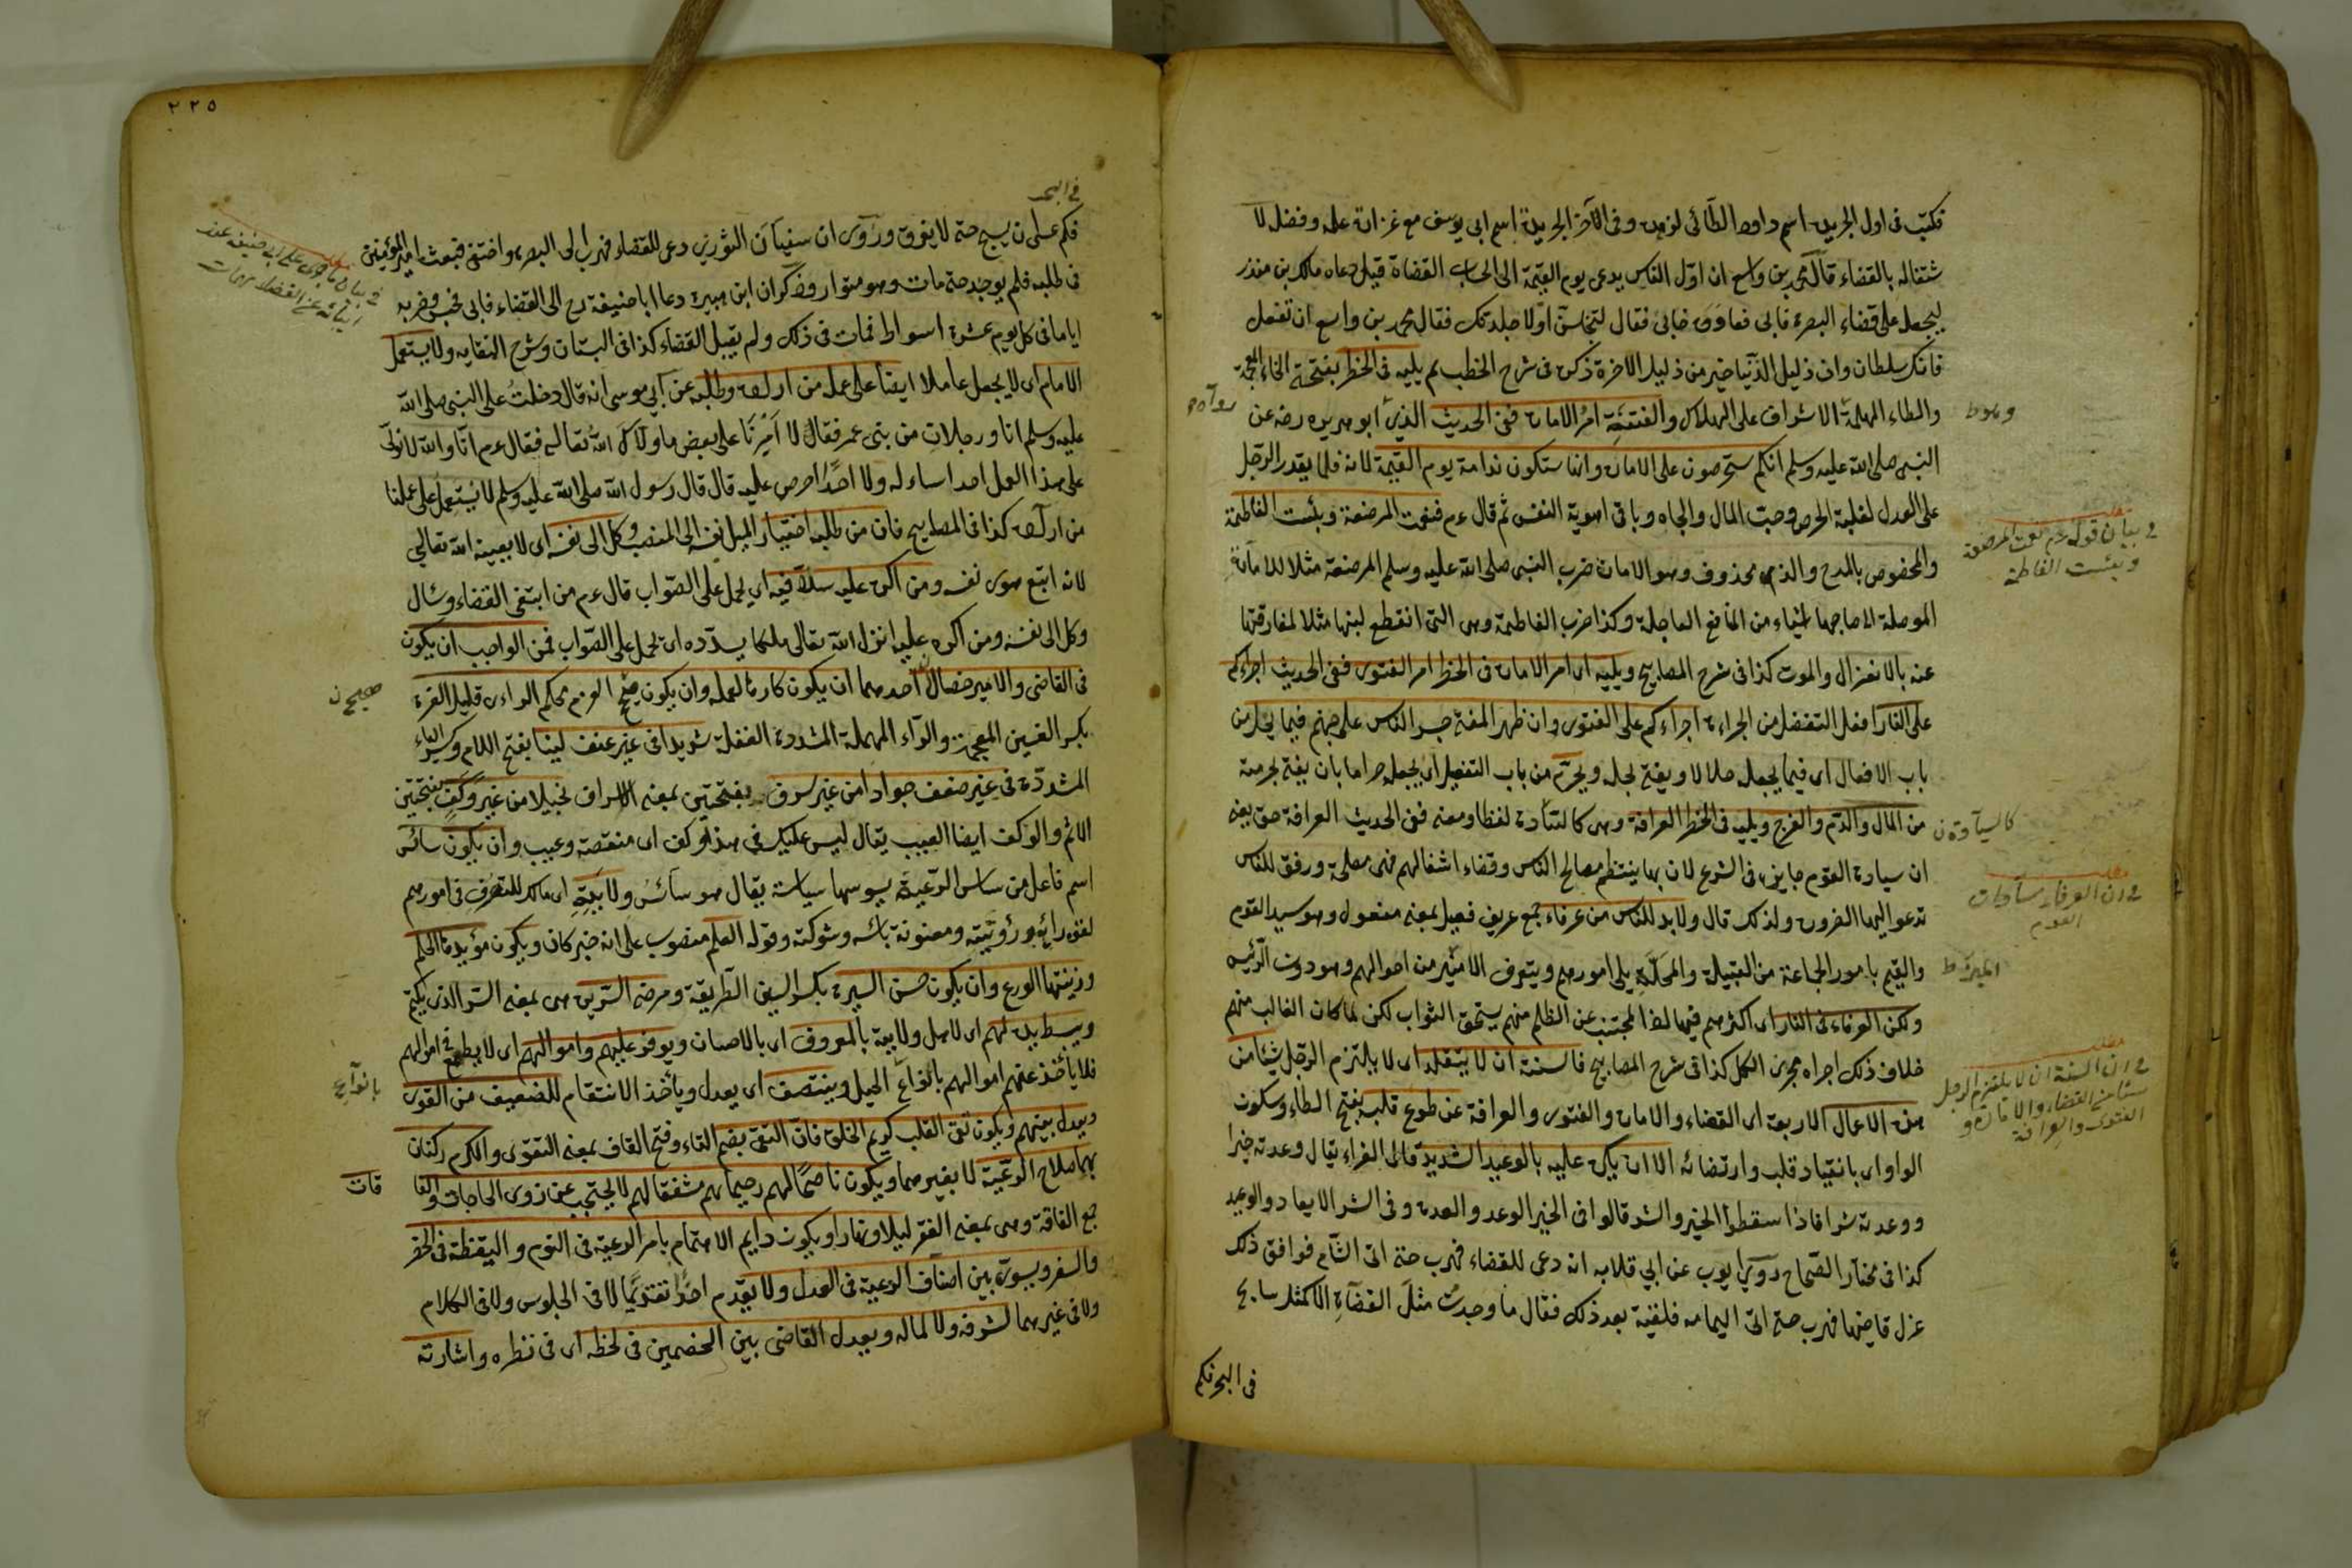 فكتب فى اول الجريدة اسم داود الطائى لزهده وفى الآخر الجريدة اسم ابى يوسف مع غزارة علمه وفضل لا
شتغاله بالقضاء قال محمد بن واسع ان اول الناس يدعى يوم القيمة الى الحساب القضاة قيل دعاه مالك بن منذر
ليجعل على قضاء البصرة فابى فعاوده فابى فقال لتجلسن او لاجلدنك فقال محمد بن واسع ان تفعل
فانك سلطان وان ذليل الدنيا خير من ذليل الاخرة ذكره فى شرح الخطب ثم يليه فى الخطر بفتحة الخاء المعجمة
والطاء المهملة الاشراف على الهلاك والفتنة امر الامارة ففى الحديث الذى رواه ابو هريره رضه عن
النبى صلى الله عليه وسلم انكم ستحرصون على الامارة وانها ستكون ندامة يوم القيمة لانه قلما يقدر الرجل
على العدل لغلبة الحرص وحب المال والجاه وباقى اهوية النفس ثم قال عم فنعمت المرضعة وبئست الفاطمة
والمخصوص بالمدح والذم محذوف وهو الامارة ضرب النبى صلى الله عليه وسلم المرضعة مثلا للامارة
الموصلة الى صاحبها اشياء من المنافع العاجلة وكذا ضرب الفاطمة وهى التى انقطع لبنها مثلا لمفارقتها
عنه بالانعزال والموت كذا فى شرح المصابيح ويليه اى امر الامارة فى الخطر امر الفتوى ففى الحديث اجراءكم
على النار افعل التفضيل من الجراءة اجراءكم على الفتوى وان ظهر المفتى جسر الناس على جهنم فيما يحل من
باب الافعال اى فيما يجعله حلالا ويفتى لحله ويحرم من باب التفعيل اى يجعله حراما بان يفتى لحرمته
من المال والدم والفرج ويليه فى الخطر العرافة وهى كالسيادة لفظا ومعنى ففى الحديث العرافة حق يعنى
ان سيادة القوم جايزة فى الشرع لان بها ينتظم مصالح الناس وقضاء اشغالهم فهى مصلحة ورفق للناس
تدعو اليها الضرورة ولذلك قال ولا بد للناس من عرفاء جمع عريف فعيل بمعنى مفعول وهو سيد القوم
والقيم بامور الجماعة من القبيلة والمحلة يلى امورهم ويتعرف الامير من احوالهم وهو دون الرئيس
ولكن العرفاء فى النار اى اكثرهم فيها اذ المجتنب عن الظلم منهم يستحق الثواب لكن لما كان الغالب منهم
خلاف ذلك اجراه مجرى الكل كذا فى شرح المصابيح فالسنة ان لا يتقلد اى لا يلتزم الرجل شيئا من
من الاعمال الاربعة اى القضاء والامارة والفتوى والعرافة عن طوع قلبه بفتح الطاء وسكون
الواو اى بانقياد قلب وارتضائه الا ان يكره عليه بالوعيد الشديد قال الفراء يقال وعدته خيرا
ووعدته شرا فاذا اسقطوا الخير والشر قالوا فى الخير الوعد والعدة وفى الشر الايعاد والوعيد
كذا فى مختار الصحاح روى ايوب عن ابى قلابه انه دعى للقضاء فهرب حتى اتى الشام فوافق ذلك
عزل قاضيها فهرب حتى اتى اليمامه فلقيته بعد ذلك فقال ما وجدت مثل القضاة الا كمثل سابح
فى البحر فكم
وسقوط
رواه
مطلب
فى بيان قوله عم نعمت المرضعة
وبئست الفاطمة
كالسيادة ن
مطلب
فى ان العرفاء سادات
القوم
مطلب
فى ان السنة ان لا يلتزم الرجل
شيئا من القضاء والامارة و
الفتوى والعرافة
٢٢٥
فى البحر
فكم عسى ان يسبح حتى لا يغرق وروى ان سفيان الثورى دعى للقضاء فهرب الى البصرة واختفى فبعث امير المؤمنين
فى طلبه فلم يوجد حتى مات وهو متوار وذكر ان ابن هبيرة دعا ابا حنيفة رح الى القضاء فابى فحبس وضربه
اياما فى كل يوم عشرة اسواط فمات فى ذلك ولم يقبل القضاء كذا فى البستان وشرح النقايه ولا يستعمل
الامام اى لا يجعل عاملا ايضا على عمله من اراده وطلبه عن ابى موسى انه قال دخلت على النبى صلى الله
عليه وسلم انا ورجلان من بنى عمى فقالا امرنا على بعض ما ولاك الله تعالى فقال عم انا والله لا نولى
على هذا العمل احدا ساءله ولا احدا حرص عليه قال قال رسول الله صلى الله عليه وسلم لا نستعمل على عملنا
من اراده كذا فى المصابيح فان من طلبه اختيار الميل نفسه الى المنصب وكل الى نفسه اى لا يعينه الله تعالى
لانه اتبع هوى نفسه ومن اكره عليه سدد فيه اى يحمل على الصواب قال عم من ابتغى القضاء وسأل
وكل الى نفسه ومن اكره عليه انزل الله تعالى ملكا يسدده اى يحمل على الصواب فمن الواجب ان يكون
فى القاضى والامير خصال احدهما ان يكون كارها لعمله وان يكون صحيح العزم محكم الراءى قليل الغرة
بكسر الغين المعجمة والراء المهملة المشددة الغفلة شديدا فى غير عنف لينا بفتح اللام وكسر الياء
المشددة فى غير ضعف جوادا من غير سرف بفتحتين بمعنى الاسراف بخيلا من غير وكف بفتحتين
الاثم والوكف ايضا العيب يقال ليس عليك فى هذا وكف اى منقصة وعيب وان يكون سائس
اسم فاعل من ساس الرعية يسوسها سياسة يقال هو سائس ولايته اى مالك للتصرف فى امورهم
لقوة رأيه ورؤيته ومعونة بأسه وشوكته وقوله العلم منصوب على انه خبر كان ويكون مؤيدها الحلم
وزينتها الورع وان يكون حسن السيرة بكسر السين الطريقة ومرضى السريرة هى بمعنى السر الذى يكتم
ويبسط يده لهم اى لاهل ولايته بالمعروف اى بالاحسان ويوفر عليهم اموالهم اى لا يطمع فى اموالهم
فلا يأخذ عنهم اموالهم بانواع الحيل وينتصف اى يعدل ويأخذ الانتقام للضعيف من القوى
ويعدل بينهم ويكون تقى القلب كريم الخلق فان التقى بضم التاء وفتح القاف بمعنى التقوى والكرم ركنان
بهما صلاح الرعية لا بغيرهما ويكون ناصحا لهم رحيما بهم مشفقا لهم لا يحتجب عن ذوى الحاجات والفا
قات
جمع الفاقة وهى بمعنى الفقر ليلا ونهارا ويكون دايم الاهتمام بامر الرعية فى النوم واليقظة فى الحضر
والسفر ويسوى بين اصناف الرعية فى العدل ولا يقدم احدا تقديما لا فى الجلوس ولا فى الكلام
ولا فى غيرهما لشرفه ولا لماله ويعدل القاضى بين الخصمين فى لحظه اى فى نظره واشارته
فى بيان ما جرى على ابى حنيفه عند
صحيح ن
بانواع